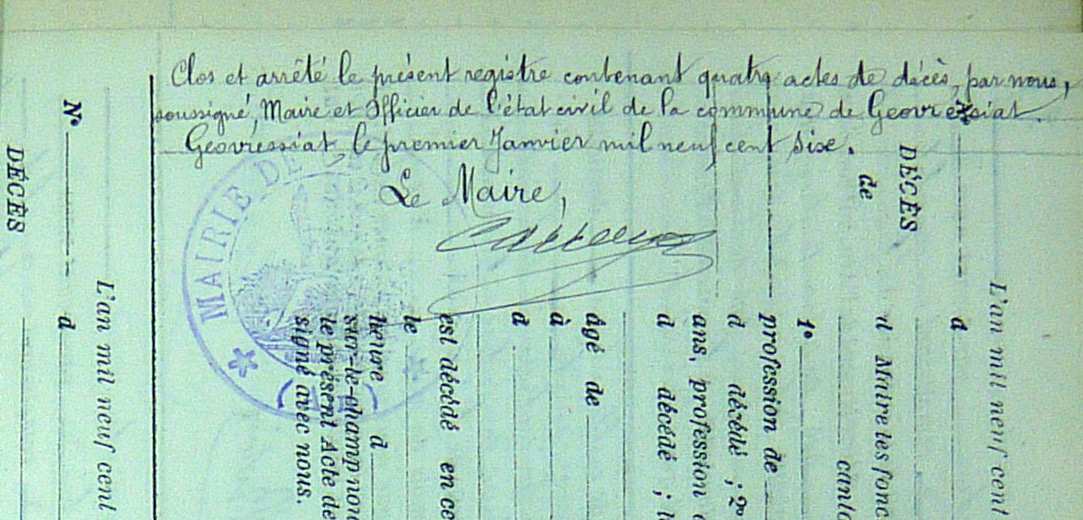 Clos et arrêté le présent registre contenant quatre actes de décès, par nous,
soussigné, Maire et Officier de l'état civil de la commune de Geovressiat.
Geovressiat le premier Janvier mil neuf cent six.
Le Maire,
MAIRIE DE
DÉCÈS
N°
d
L'an mil neuf cent
DÉCÈS
de
d
L'an mil neuf cent
d Maire les fonc
canto
1°
profession de
d décédé ; 2°
ans, profession d
d décédé ; l
âgé de
à
d
est décédé en ce
le
heure d
sur-le-champ nou
le présent Acte de
signé avec nous.